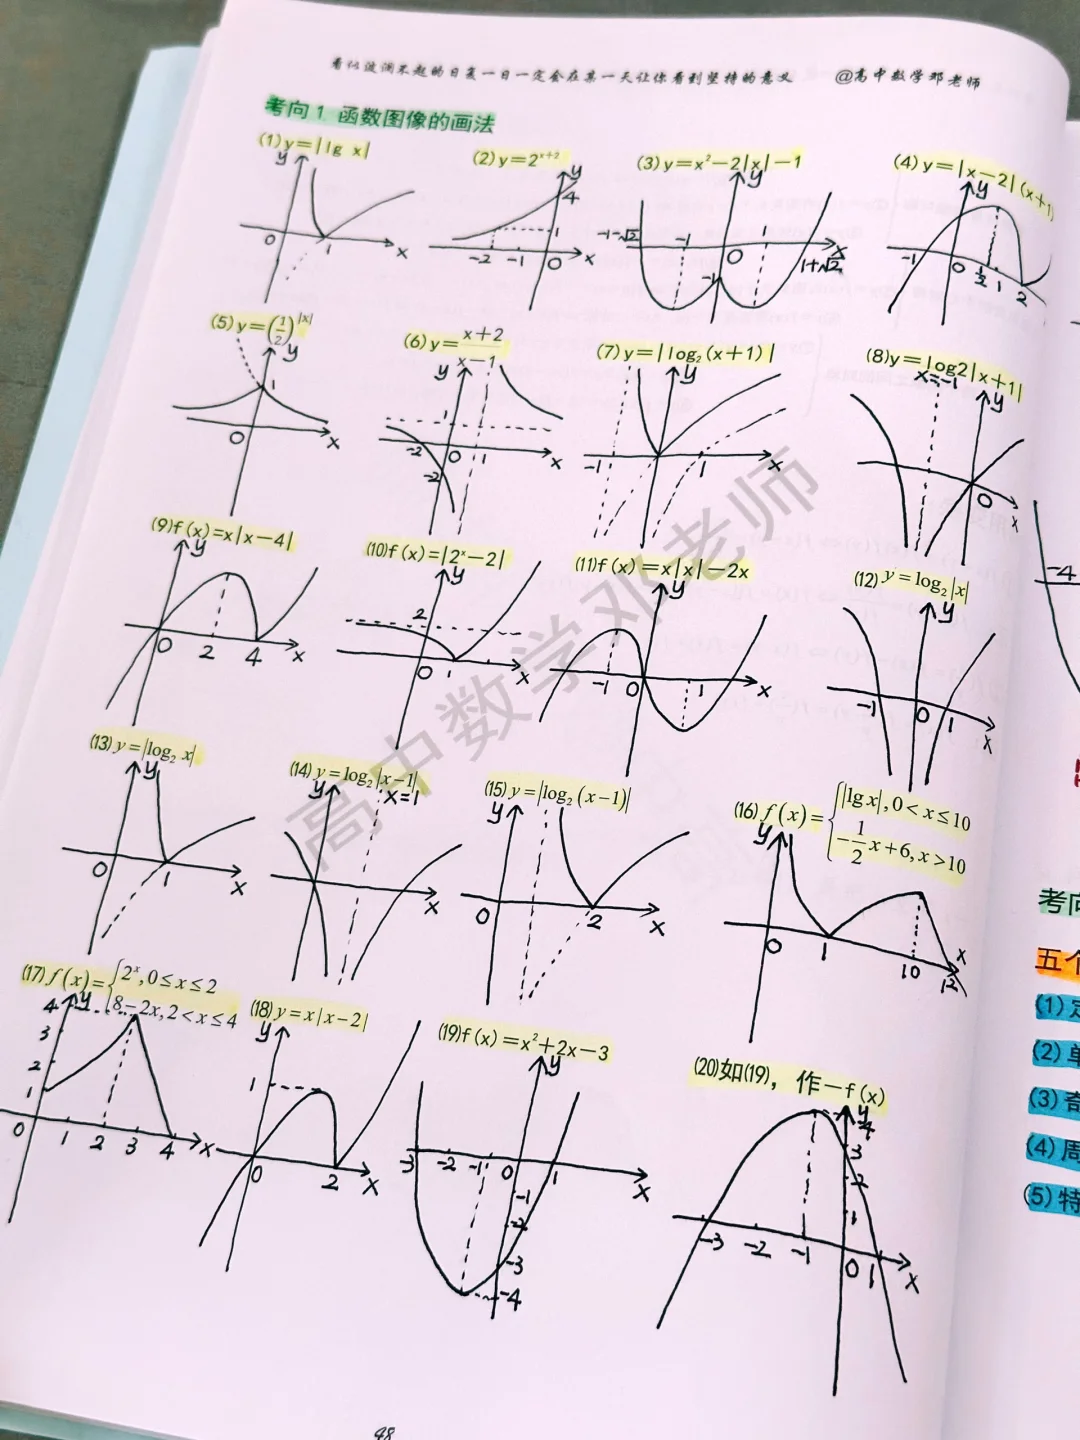 看似波澜不起的日复一日一定会在某一天让你看到坚持的意义 @高中数学邓老师
考向1. 函数图像的画法
(1)y=|lg x|
(2)y=2^{x+2}
(3)y=x²-2|x|-1
(4)y=|x-2|(x+1)
y
0
1
x
y
4
1
-2
-1
0
x
y
-1-√2
-1
0
1
-1
1+√2
x
y
-1
0
1/2
1
2
(5)y=(1/2)^{|x|}
(6)y=(x+2)/(x-1)
(7)y=|log₂(x+1)|
(8)y=log2|x+1|
y
1
0
x
y
1
-2
0
1
-2
x
y
-1
1
x
x=-1
y
0
x
(9)f(x)=x|x-4|
(10)f(x)=|2ˣ-2|
(11)f(x)=x|x|-2x
(12) y=log₂|x|
y
0
2
4
x
y
2
0
1
x
y
-1
0
1
x
y
-1
0
1
x
(13) y=|log₂ x|
(14) y=log₂|x-1|
(15) y=|log₂(x-1)|
(16) f(x)={|lg x|, 0<x≤10
-1/2x+6, x>10
y
0
1
x
y
x=1
x
y
0
2
x
y
0
1
10
12
x
(17) f(x)={2ˣ, 0≤x≤2
8-2x, 2<x≤4
(18) y=x|x-2|
(19)f(x)=x²+2x-3
(20)如(19)，作-f(x)
y
4
3
2
1
0
1
2
3
4
x
y
1
0
2
x
y
-3
-2
-1
0
1
x
-1
-2
-3
-4
y
4
3
2
1
-3
-2
-1
0
1
x
48
高中数学邓老师
-4
考向
五个
(1)定
(2)单
(3)奇
(4)周
(5)特